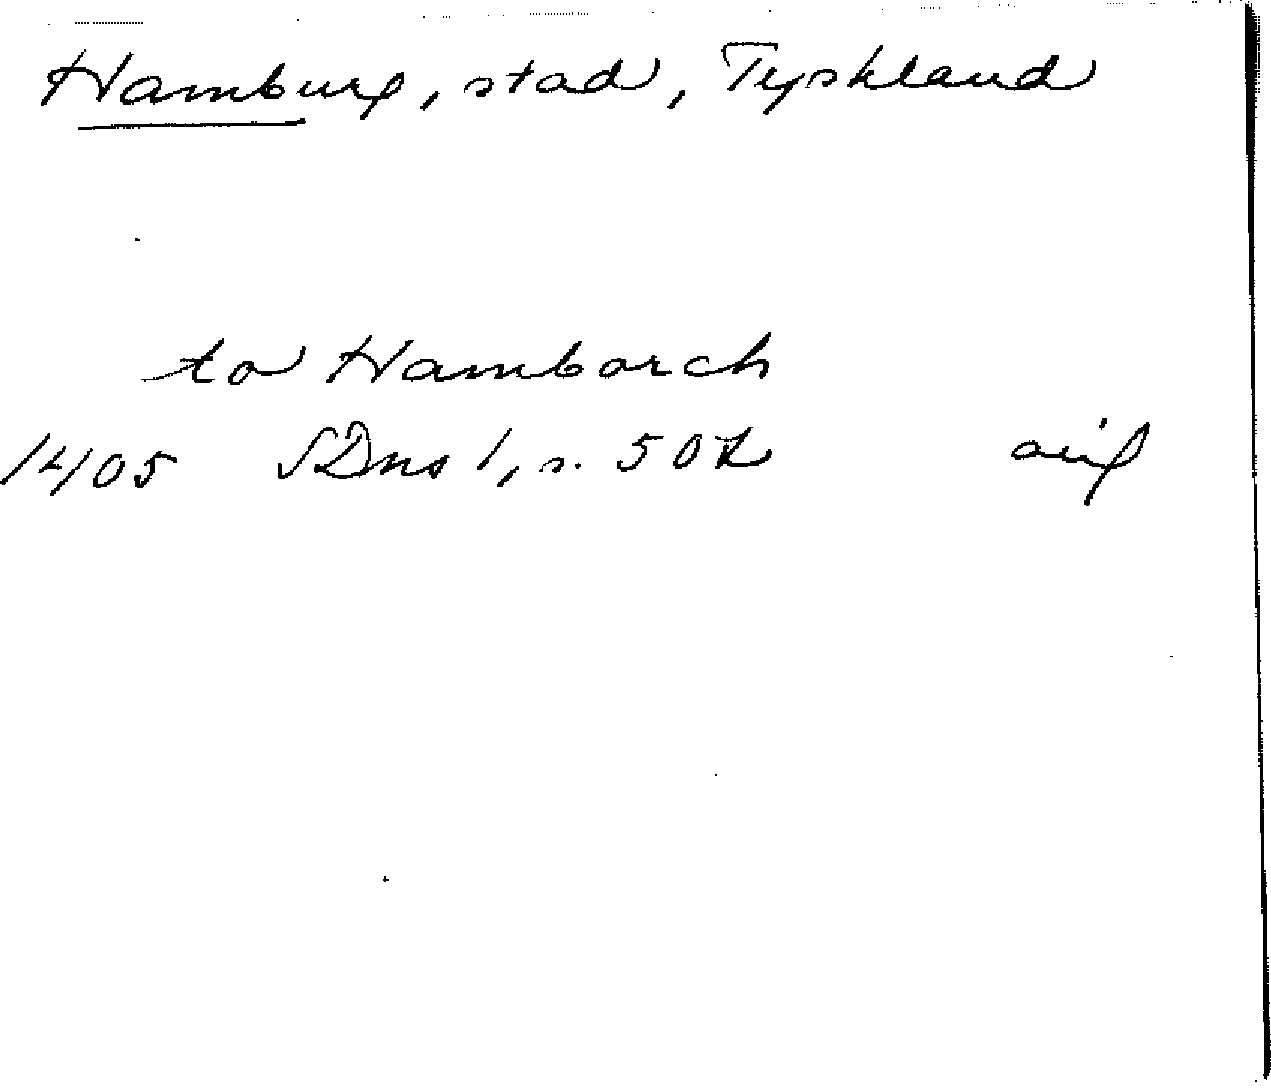 Hamburg, stad, Tyskland
to Hamborch
1405 SDns 1, s. 502 avif